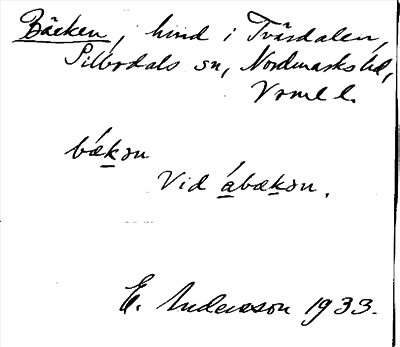 Bäcken, hmd i Tvärdalen,
Silbodals sn, Nordmarks hd,
Vrml l.
bækən
Vid ábækən.
E. Andersson 1933.